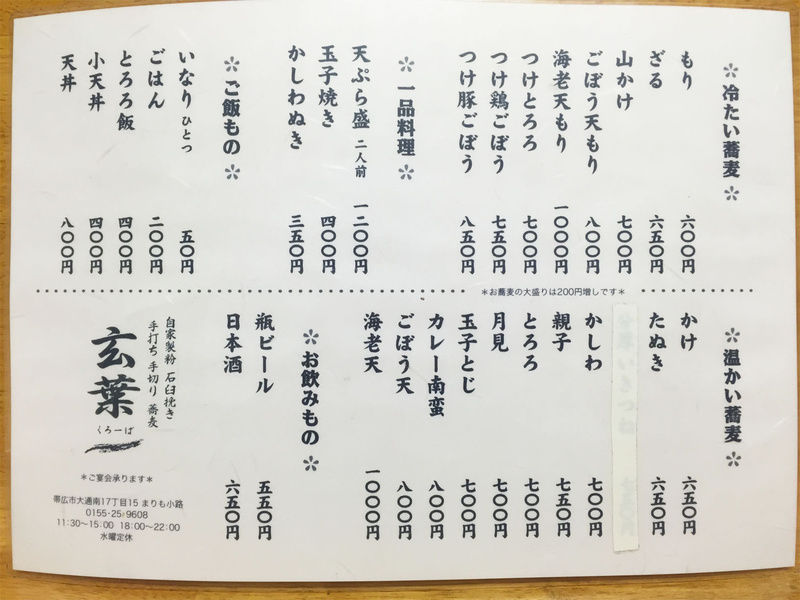 ＊冷たい蕎麦＊
もり 六〇〇円
ざる 六五〇円
山かけ 七〇〇円
ごぼう天もり 八〇〇円
海老天もり 一〇〇〇円
つけとろろ 七〇〇円
つけ鶏ごぼう 七五〇円
つけ豚ごぼう 八五〇円
＊一品料理＊
天ぷら盛 二人前 一二〇〇円
玉子焼き 四〇〇円
かしわぬき 三五〇円
＊ご飯もの＊
いなり ひとつ 五〇円
ごはん 二〇〇円
とろろ飯 四〇〇円
小天丼 四〇〇円
天丼 八〇〇円
＊お蕎麦の大盛りは200円増しです＊
＊温かい蕎麦＊
かけ 六五〇円
たぬき 六五〇円
かしわ 七〇〇円
親子 七五〇円
とろろ 七〇〇円
月見 七〇〇円
玉子とじ 七〇〇円
カレー南蛮 八〇〇円
ごぼう天 八〇〇円
海老天 一〇〇〇円
＊お飲みもの＊
瓶ビール 五五〇円
日本酒 六五〇円
自家製粉 石臼挽き
手打ち 手切り 蕎麦
玄葉
くろーば
＊ご宴会承ります＊
帯広市大通南17丁目15 まりも小路
0155-25-9608
11:30～15:00 18:00～22:00
水曜定休